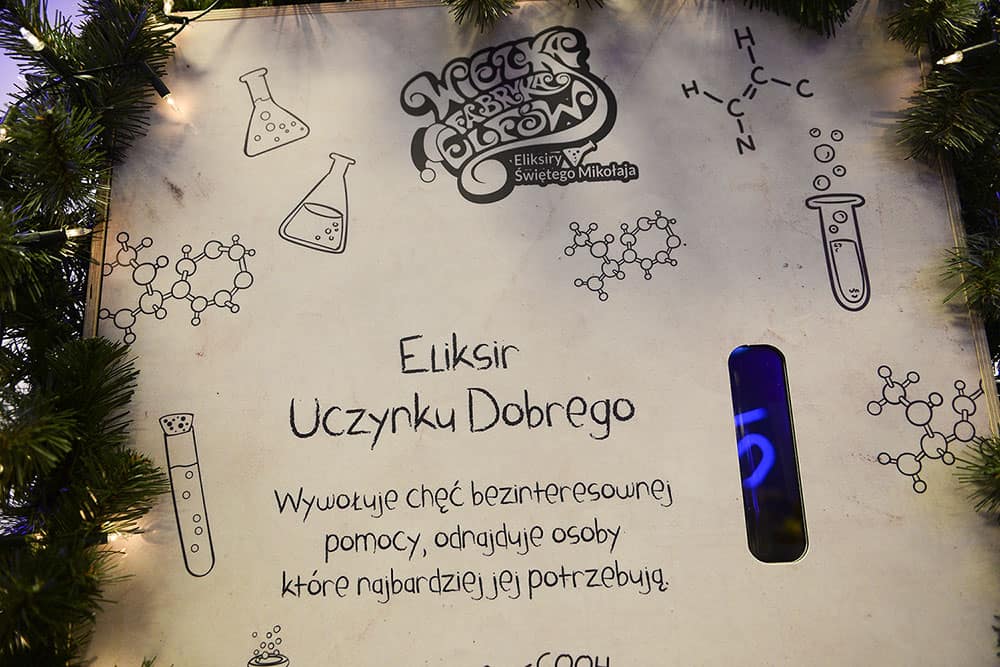 WIELKA
FABRYKA
ELFÓW
Eliksiry
Świętego Mikołaja
H
H C C
C
N
Eliksir
Uczynku Dobrego
5
Wywołuje chęć bezinteresownej
pomocy, odnajduje osoby
które najbardziej jej potrzebują.
COOH